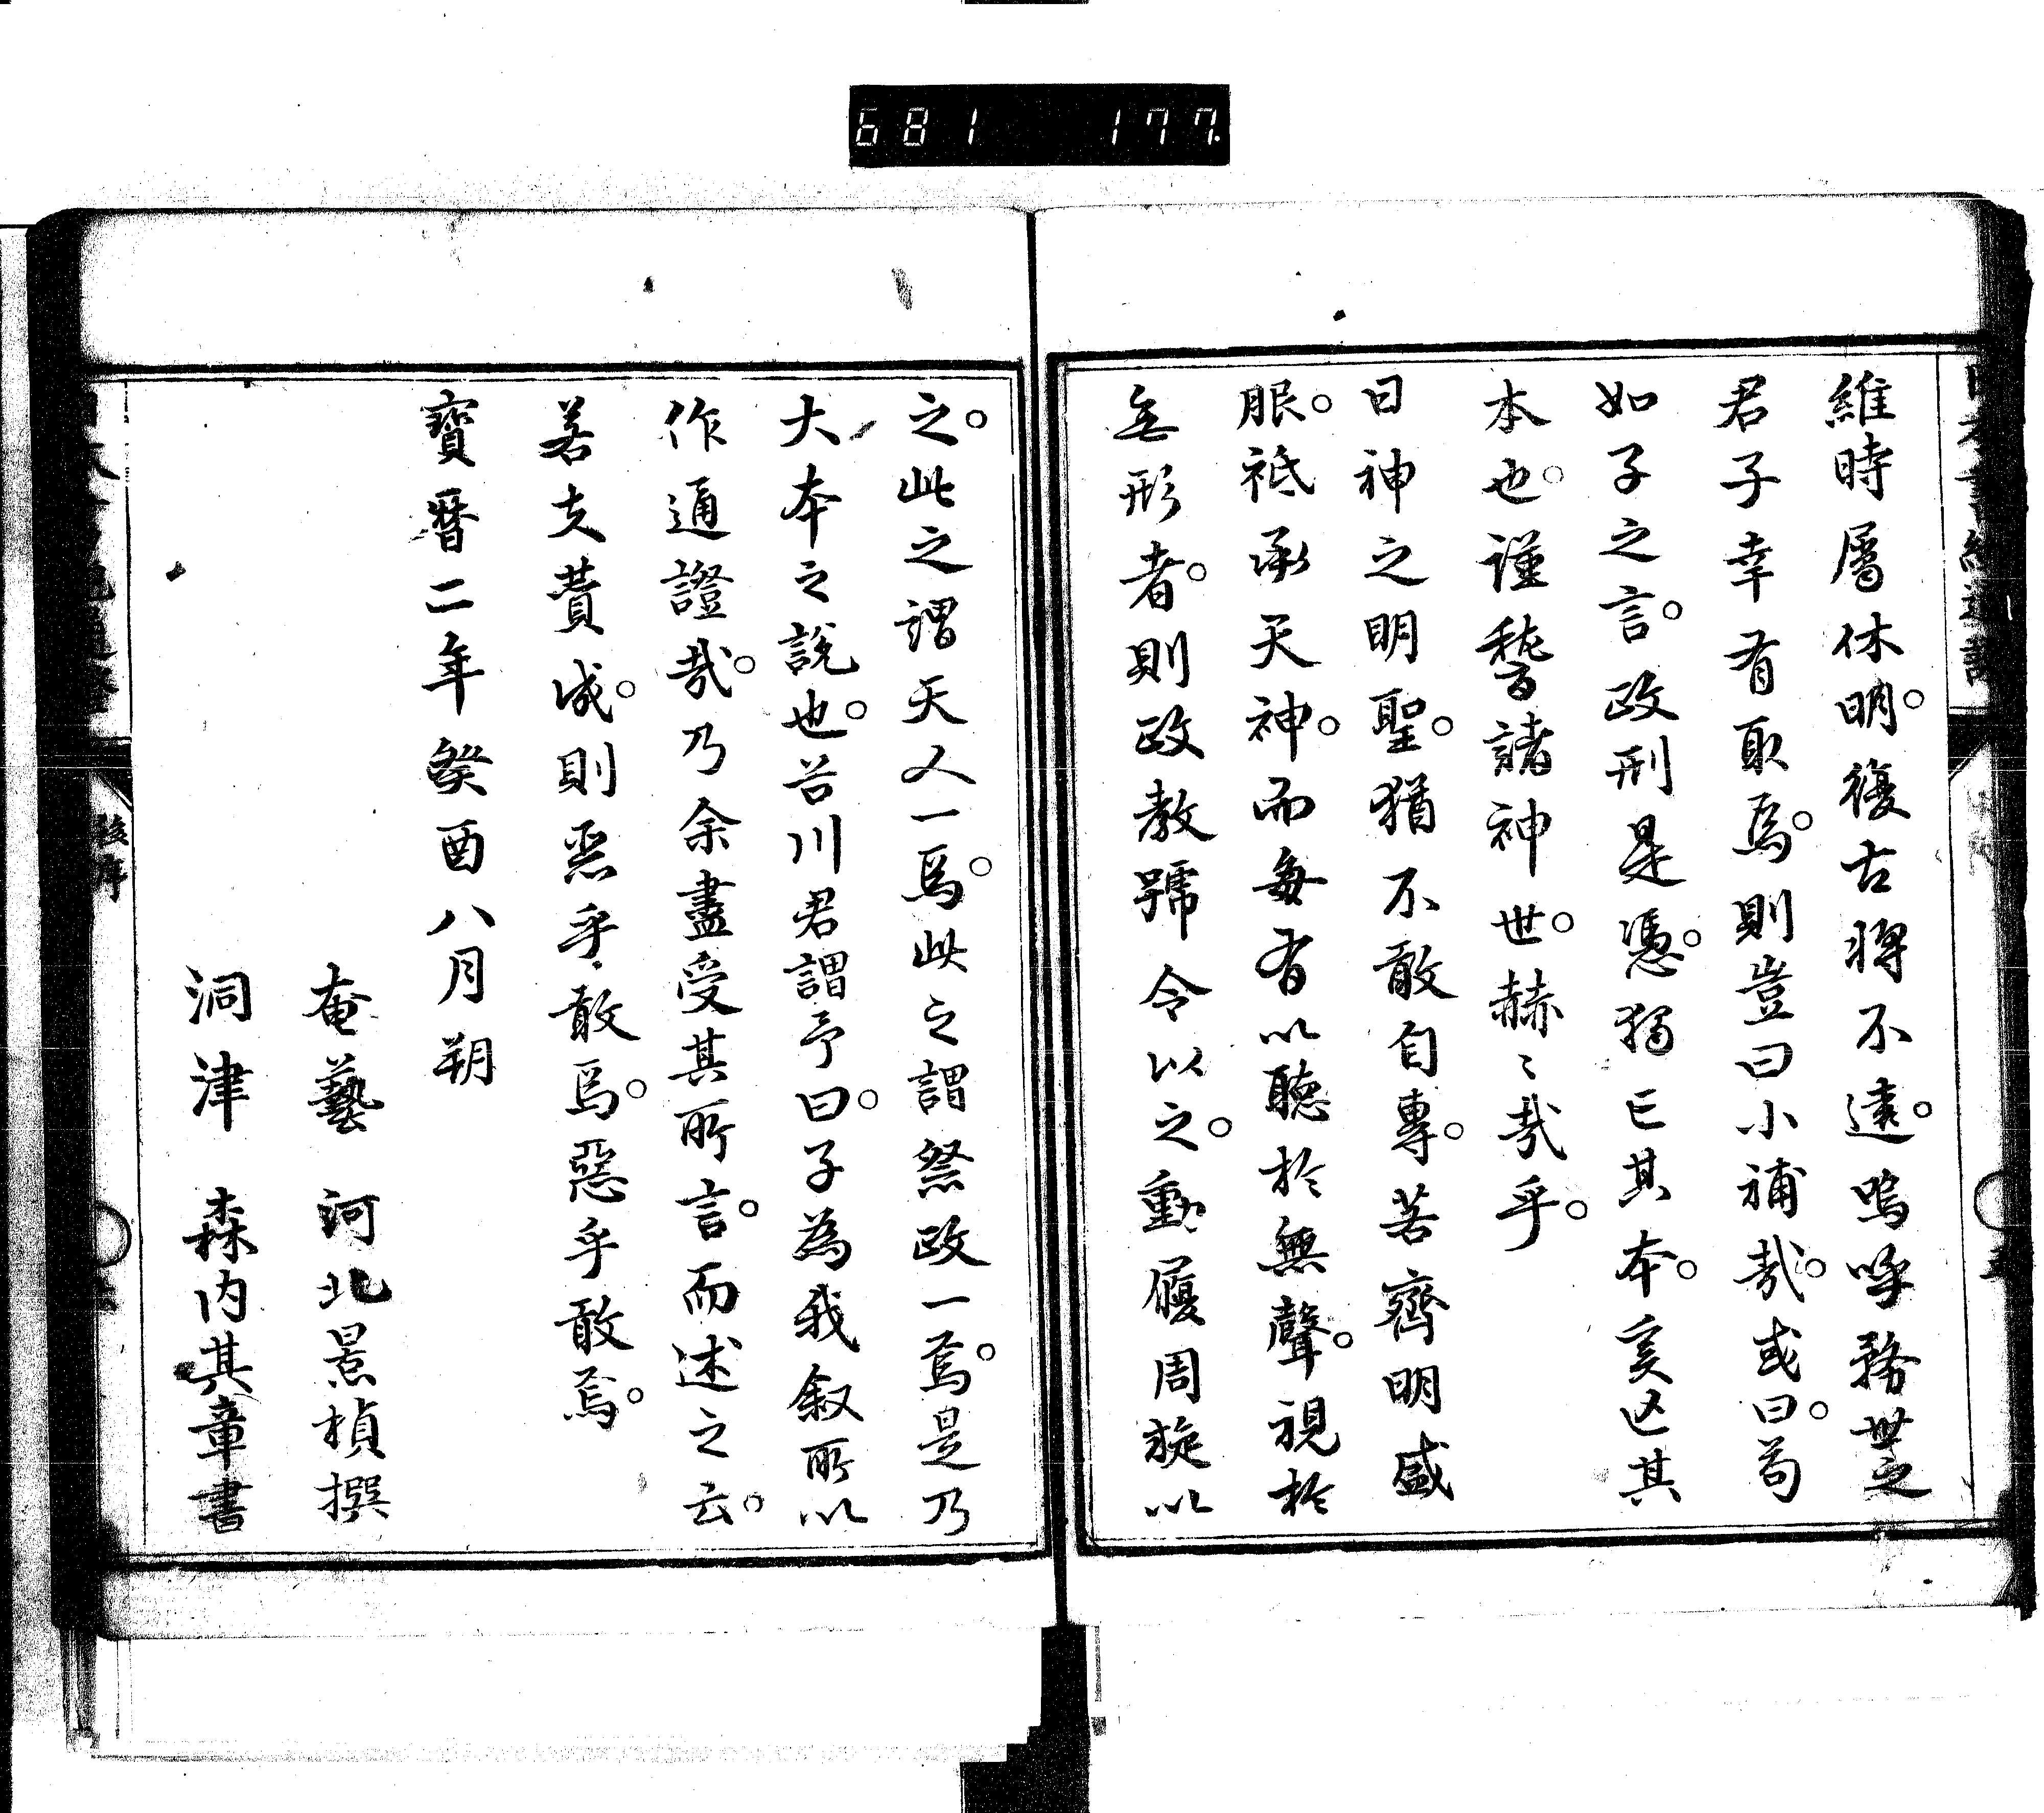 681 177.
維時屬休明。復古將不遠。嗚呼務世之
君子幸有取焉。則豈曰小補哉。或曰。苟
如子之言。政刑是憑。獨亡其本。奚亡其
本也。謹稽諸神世。赫〻哉乎。
日神之明聖。猶不敢自專。若齊明盛
服。祗承天神。而每有以聽於無聲。視於
無形者。則政教號令以之。動履周旋以
之。此之謂天人一焉。此之謂祭政一焉。是乃
大本之説也。谷川君謂予曰。子為我叙所以
作通證哉。乃余盡受其所言。而述之云。
若夫贊成。則惡乎敢焉。惡乎敢焉。
寶暦二年癸酉八月朔
奄藝 河北景楨撰
洞津 森内其章書
後序